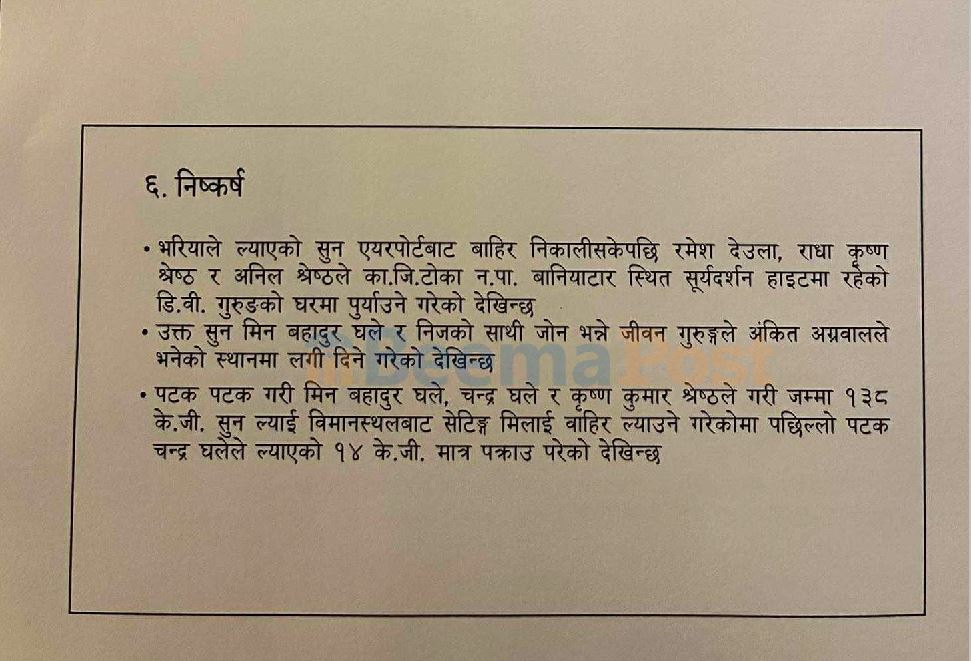 ६. निष्कर्ष
• भरियाले ल्याएको सुन एयरपोर्टबाट बाहिर निकालीसकेपछि रमेश देउला, राधा कृष्ण
श्रेष्ठ र अनिल श्रेष्ठले का.जि.टोका न.पा. बानियाटार स्थित सूर्यदर्शन हाइटमा रहेको
डि.वी. गुरुङको घरमा पुर्याउने गरेको देखिन्छ
• उक्त सुन मिन बहादुर घले र निजको साथी जोन भन्ने जीवन गुरुङ्गले अंकित अग्रवालले
भनेको स्थानमा लगी दिने गरेको देखिन्छ
BeemaPost
• पटक पटक गरी मिन बहादुर घले, चन्द्र घले र कृष्ण कुमार श्रेष्ठले गरी जम्मा १३८
के.जी. सुन ल्याई विमानस्थलबाट सेटिङ्ग मिलाई वाहिर ल्याउने गरेकोमा पछिल्लो पटक
चन्द्र घलेले ल्याएको १४ के.जी. मात्र पक्राउ परेको देखिन्छ